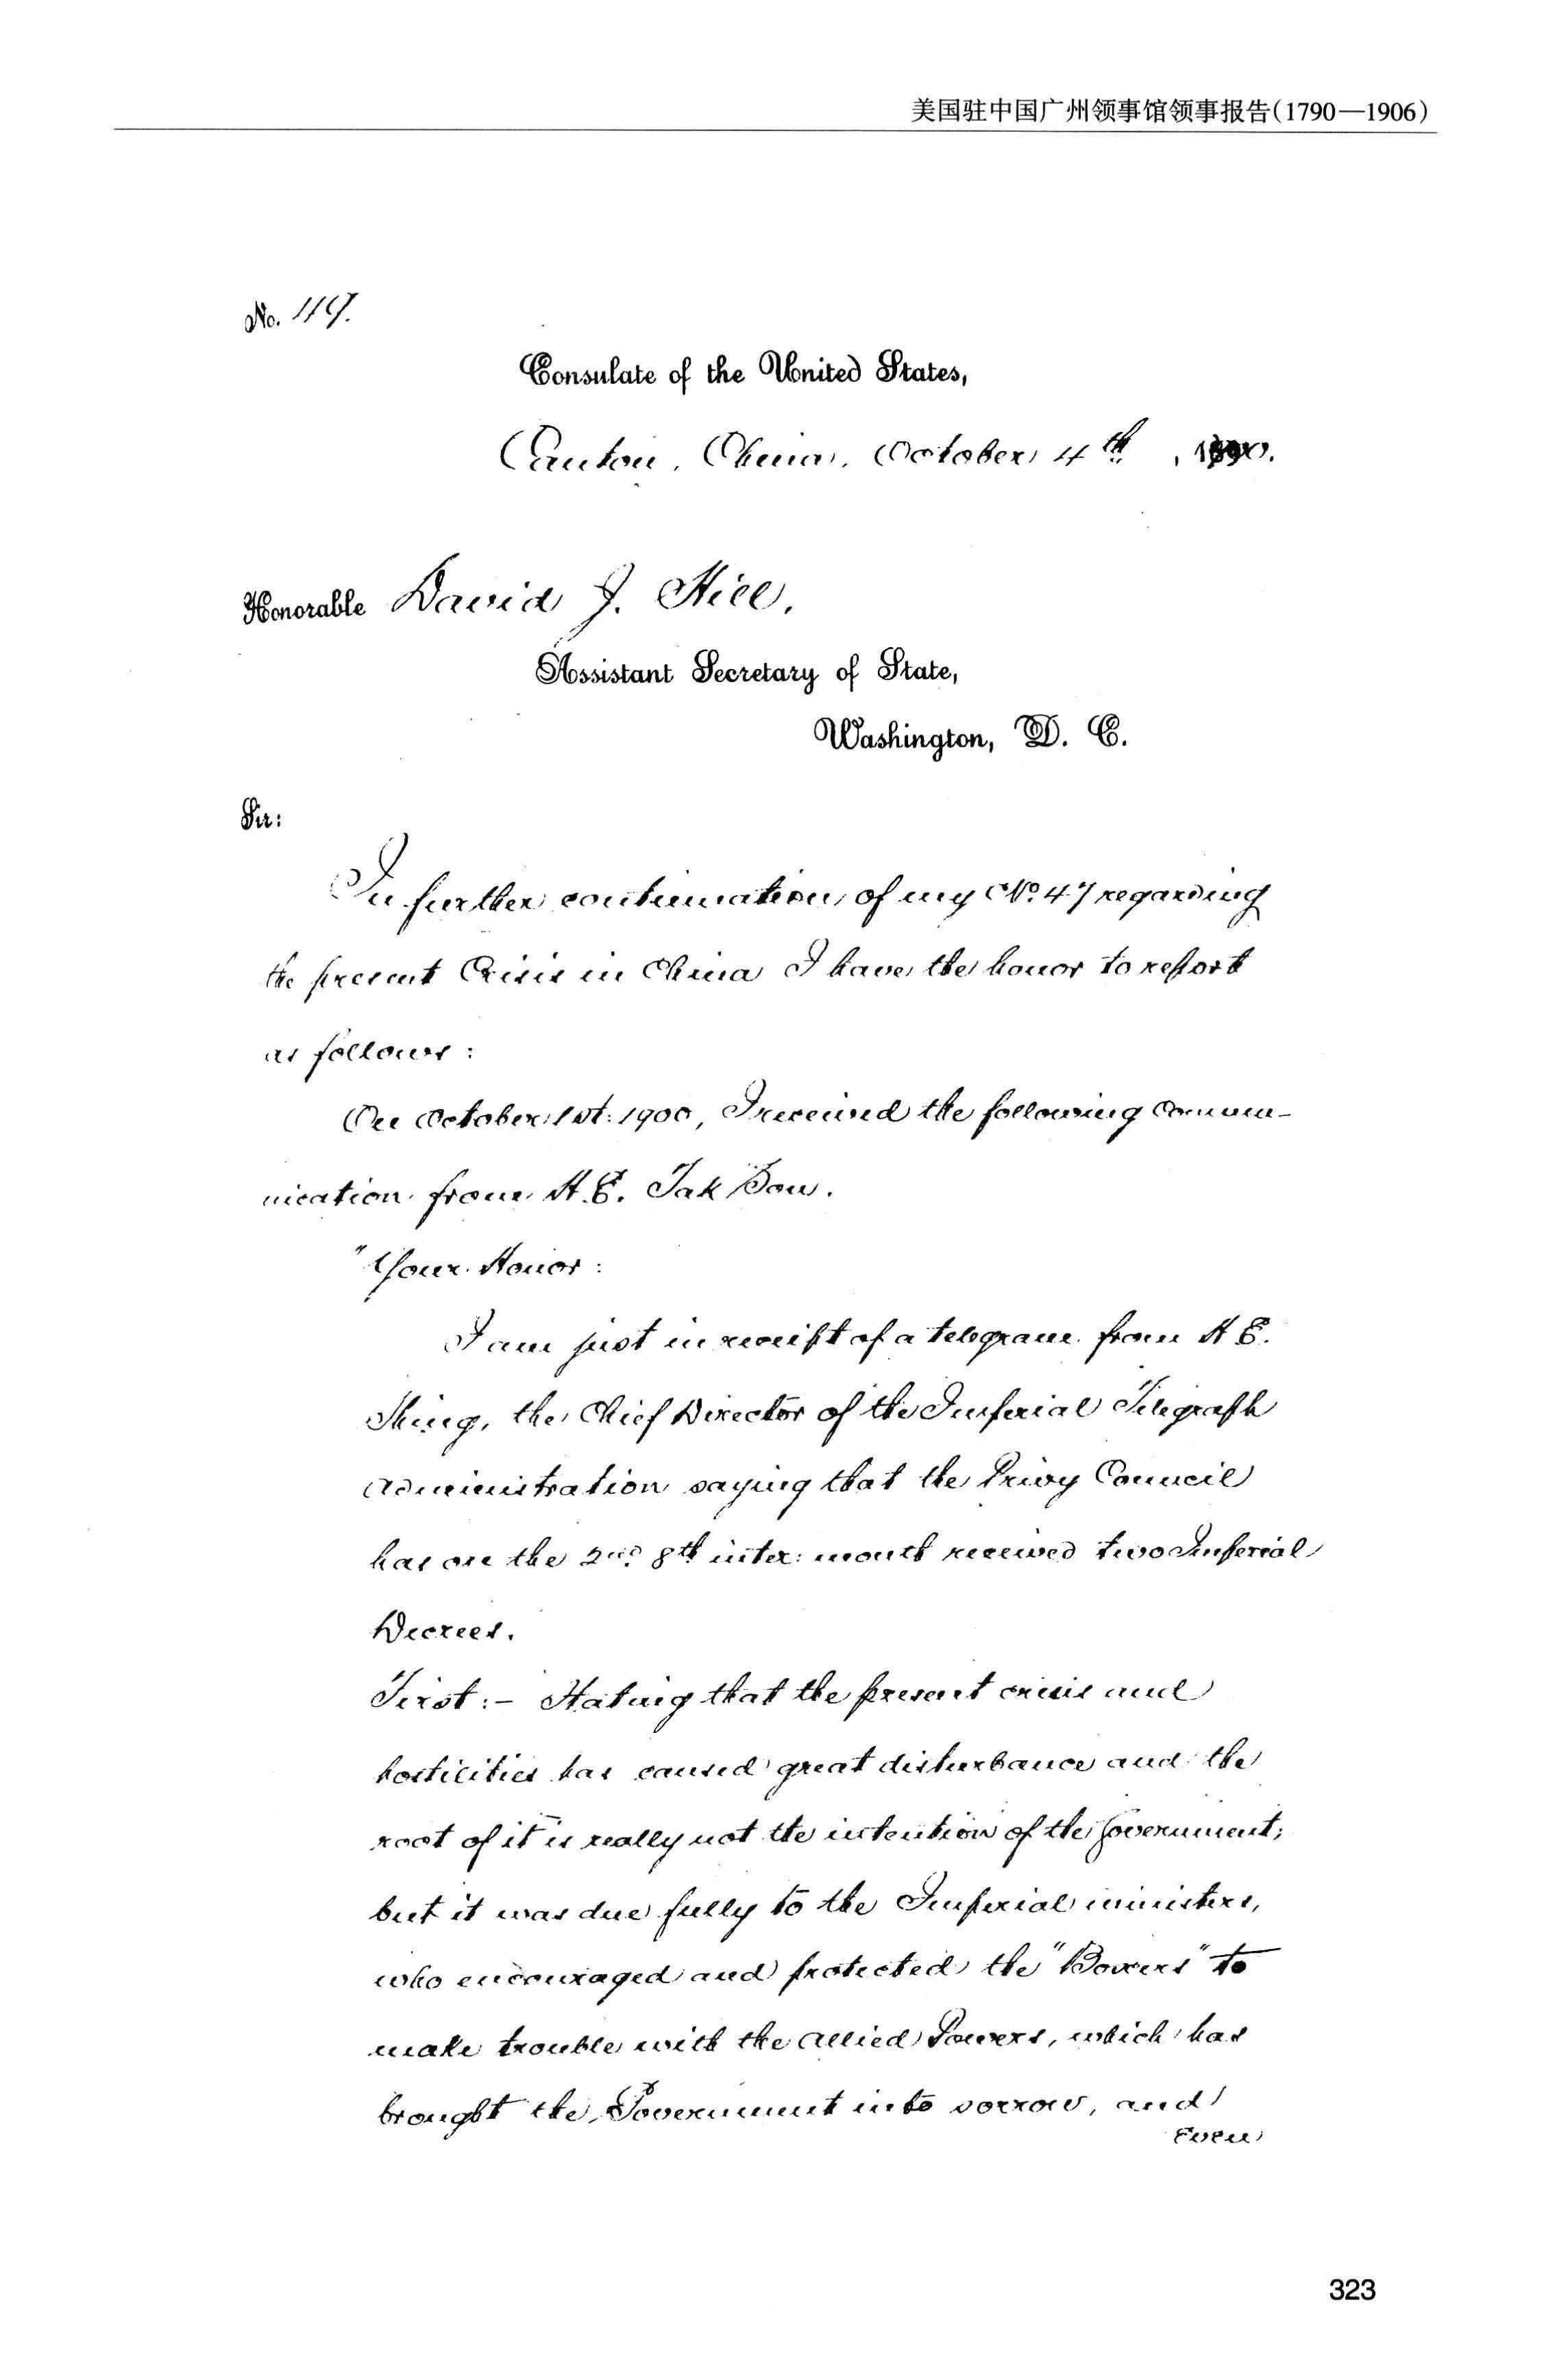 美国驻中国广州领事馆领事报告(1790—1906)
No. 49.
Consulate of the United States,
Canton, China, October 4th, 1900.
Honorable David J. Hill,
Assistant Secretary of State,
Washington, D. C.
Sir:
In further continuation of my No. 47 regarding
the present Crisis in China I have the honor to report
as follows:
On October 1st: 1900, I received the following commu-
nication from H.E. Tak Sou.
"Your Honor:
I am just in receipt of a telegram from H E.
Shing, the Chief Director of the Imperial Telegraph
Administration saying that the Privy Council
has on the 2nd 8th inter: month received two Imperial
Decrees.
First:- Stating that the present crisis and
hostilities has caused great disturbance and the
root of it is really not the intention of the Government;
but it was due fully to the Imperial ministers,
who encouraged and protected the "Boxers" to
make trouble with the Allied Powers, which has
brought the Government into sorrow, and
Even
323